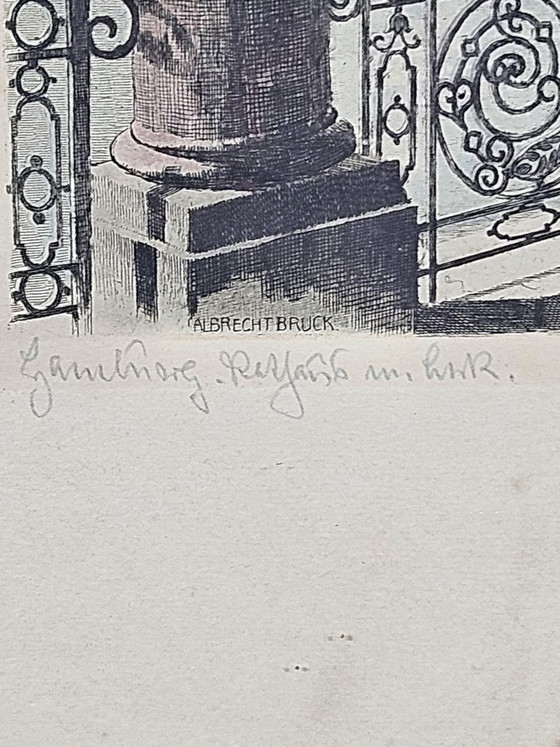 ALBRECHT BRUCK.
Hamburg. Rathaus m.